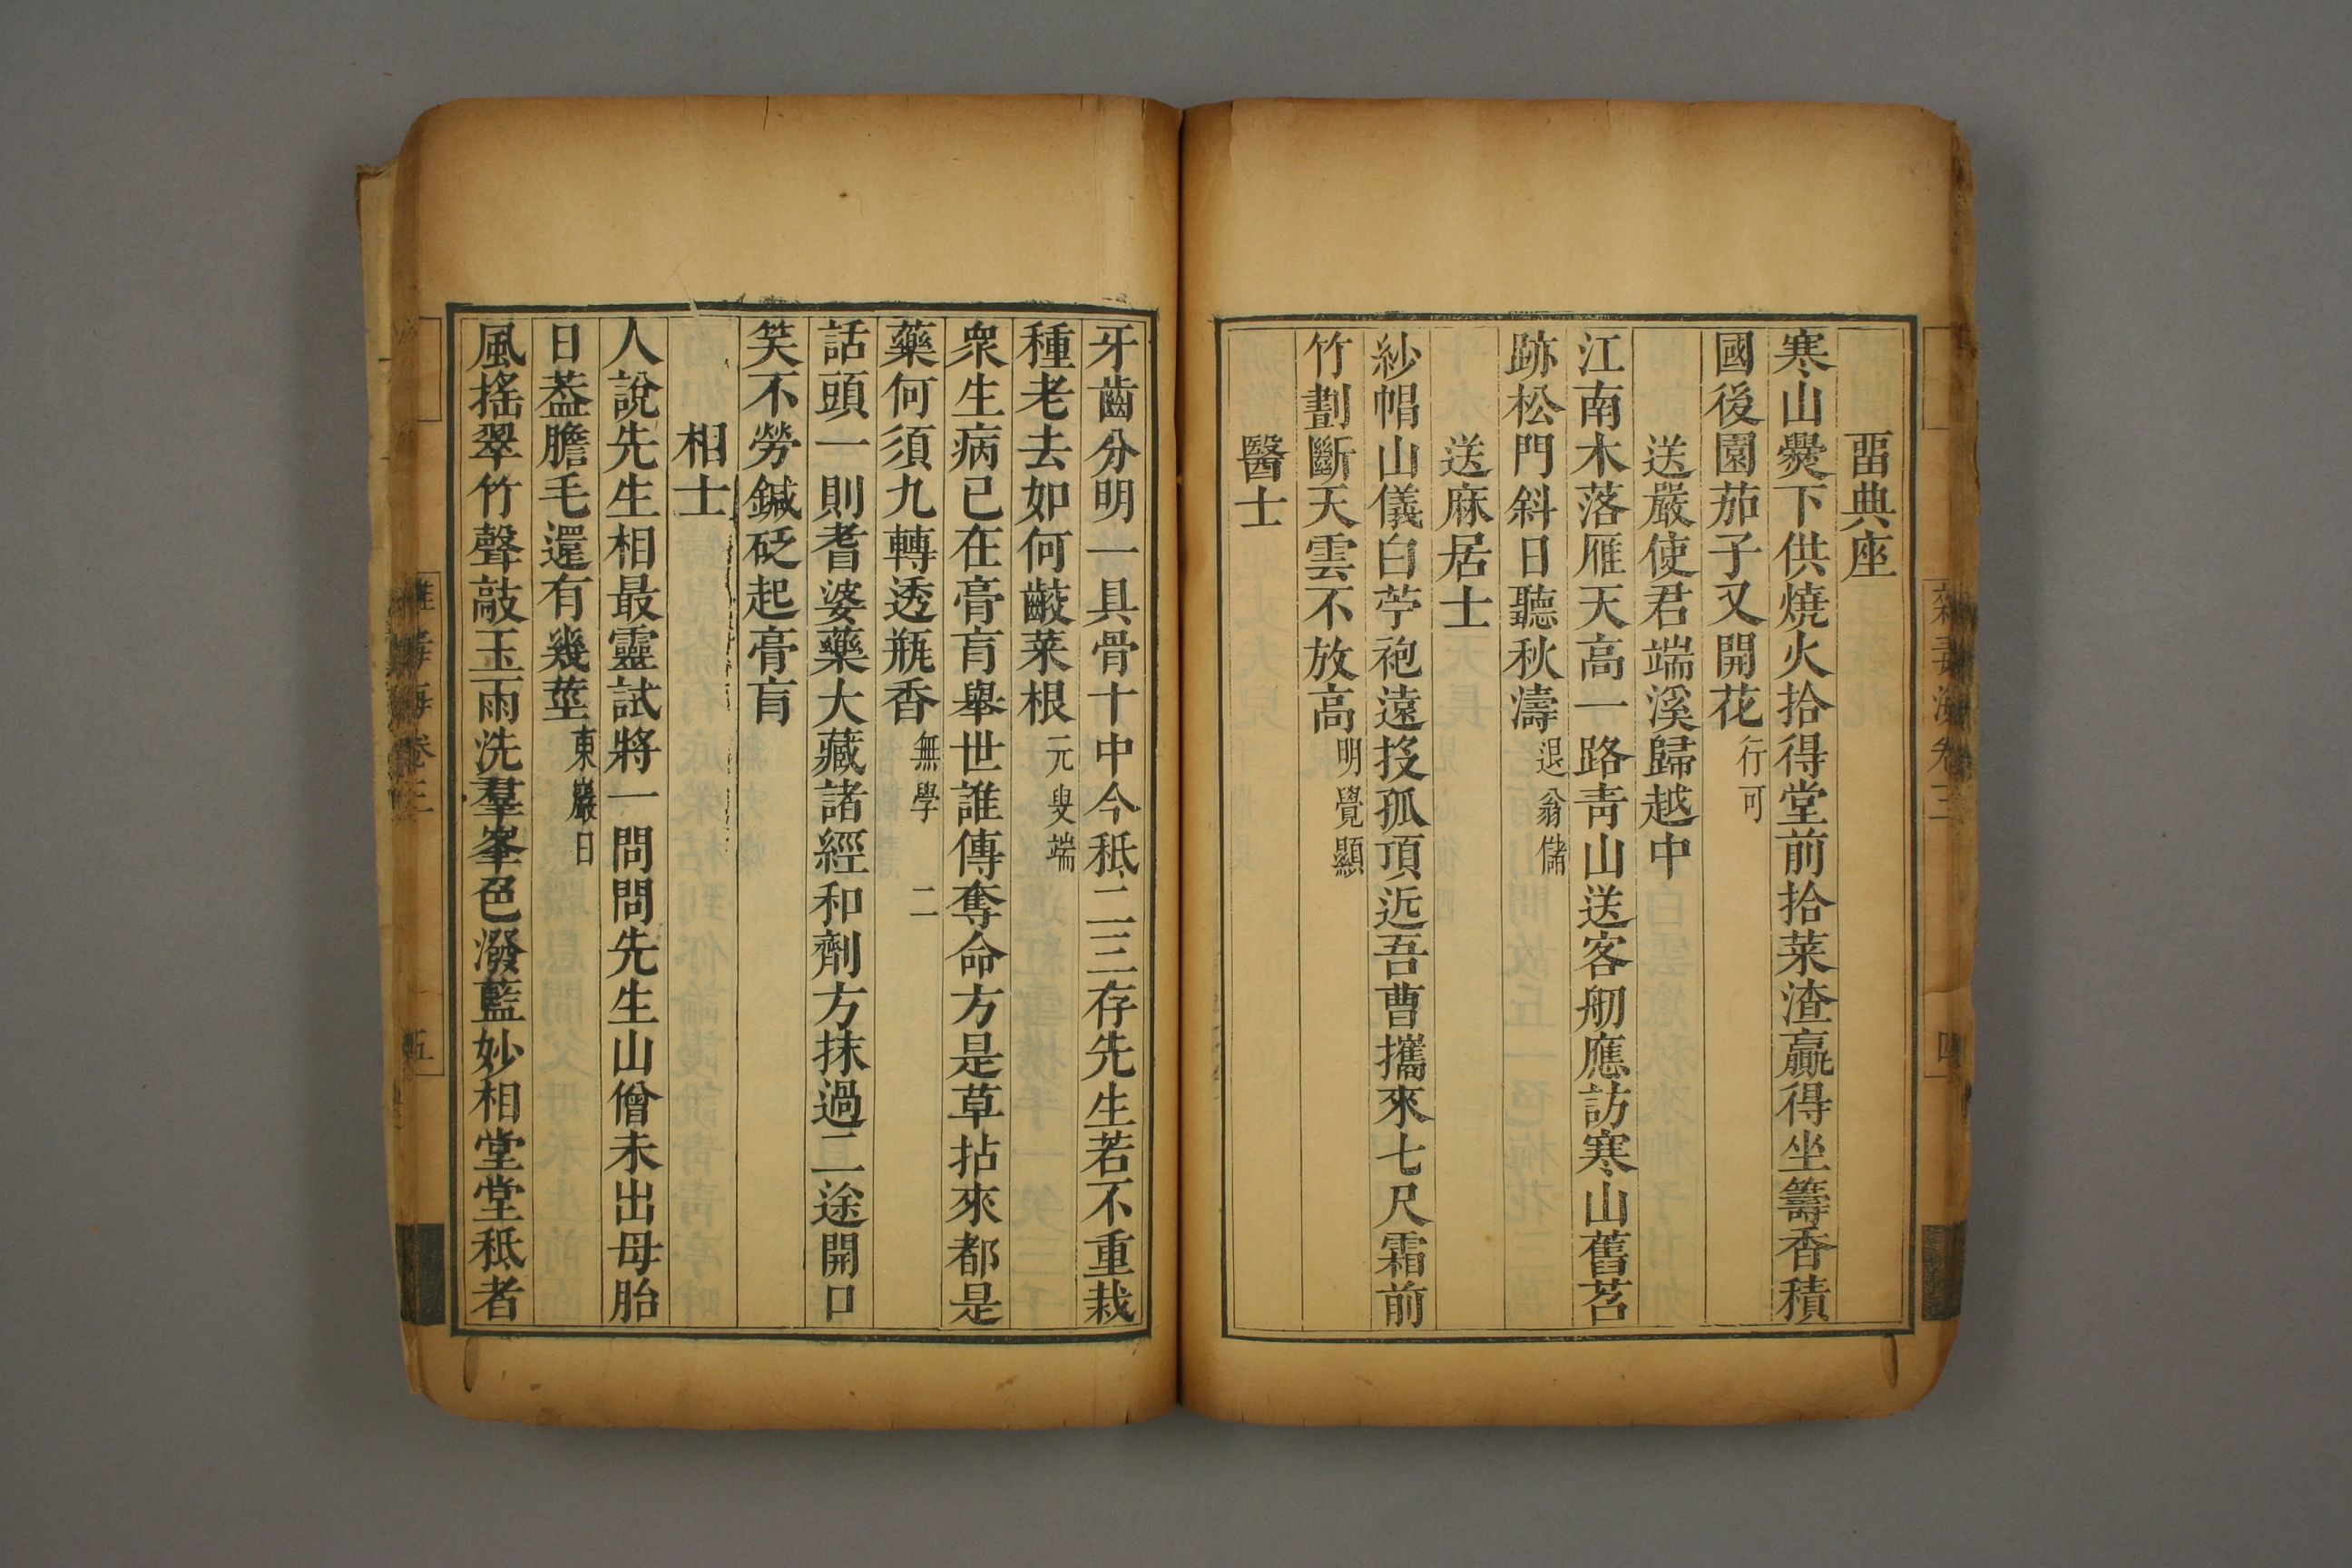 畱典座
寒山爨下供燒火拾得堂前拾菜渣贏得坐籌香積
國後園茄子又開花行可
送嚴使君端溪歸越中
江南木落雁天高一路靑山送客舠應訪寒山舊茗
跡松門斜日聽秋濤退翁儲
送麻居士
紗帽山儀白苧袍遠投孤頂近吾曹攜來七尺霜前
竹劃斷天雲不放高明覺顯
醫士
牙齒分明一具骨十中今秪二三存先生若不重栽
種老去如何齩菜根元叟端
衆生病已在膏肓舉世誰傳奪命方是草拈來都是
藥何須九轉透瓶香無學 二
話頭一則耆婆藥大藏諸經和劑方抹過二途開口
笑不勞鍼砭起膏肓
相士
人說先生相最靈試將一問問先生山僧未出母胎
日葢膽毛還有幾莖東巖日
風搖翠竹聲敲玉雨洗羣峯色潑藍妙相堂堂秪者
雜毒海卷三 四
雜毒海卷三 五